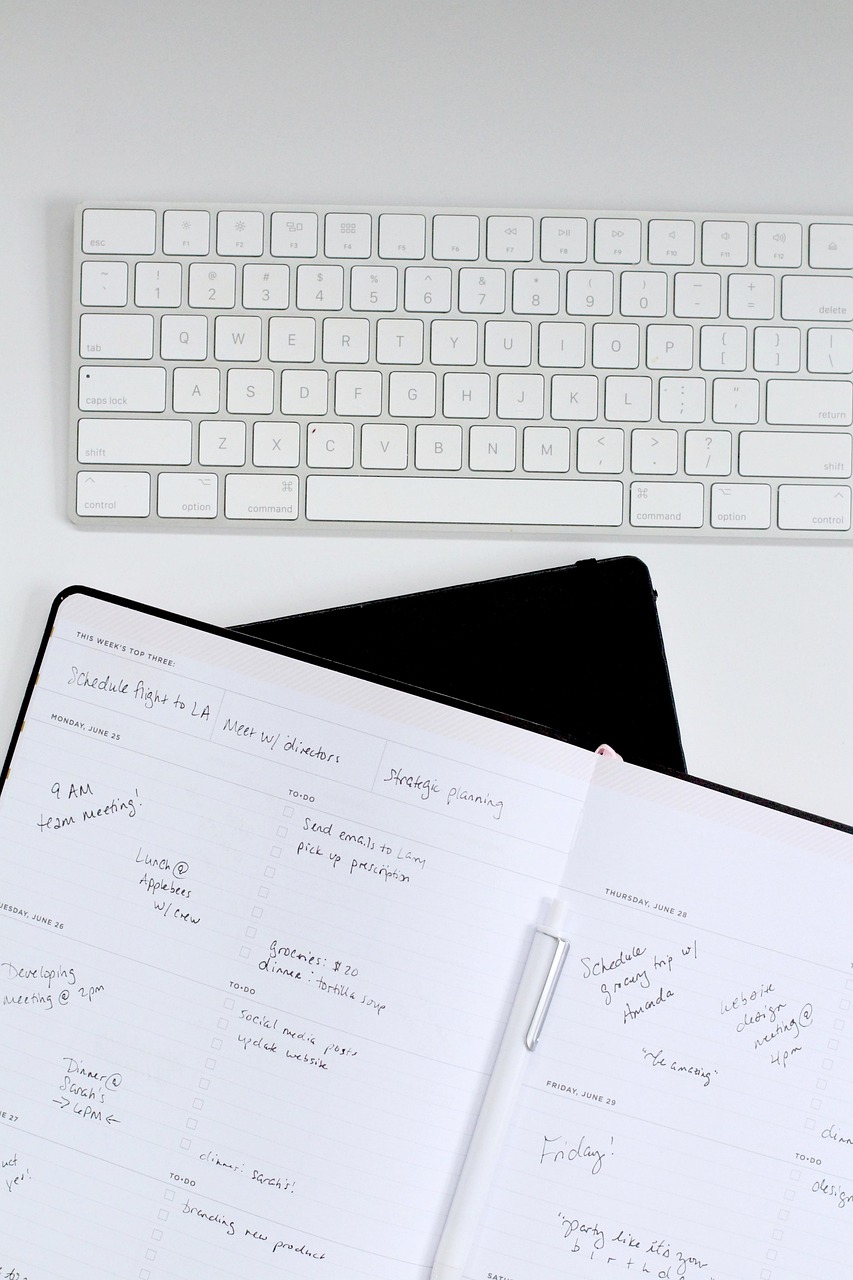 esc F1 F2 F3 F4 F5 F6 F7 F8 F9 F10 F11 F12
~ ! @ # $ % ^ & * ( ) — +
` 1 2 3 4 5 6 7 8 9 0 - = delete
tab Q W E R T Y U I O P { [ } ] | \
caps lock A S D F G H J K L : ; " ' return
shift Z X C V B N M < , > . ? / shift
control option command command option control
THIS WEEK'S TOP THREE:
Schedule flight to LA
Meet w/ directors
Strategic planning
MONDAY, JUNE 25
9 AM
team meeting!
Lunch @
Applebees
w/ crew
TO-DO
Send emails to
pick up prescription
groceries: $20
dinner: tortilla soup
UESDAY, JUNE 26
Developing
meeting @ 2pm
Dinner @
Sarah's
→ 6PM ←
TO-DO
social media posts
update website
dinner: Sarah's!
E 27
uct
yes!
TO-DO
branding new product
THURSDAY, JUNE 28
Schedule
grocery trip w/
Amanda
website
design
meeting @
4pm
"be amazing"
dinn
FRIDAY, JUNE 29
Friday!
"party like it's your
b i r t h d
TO-DO
design
SATU